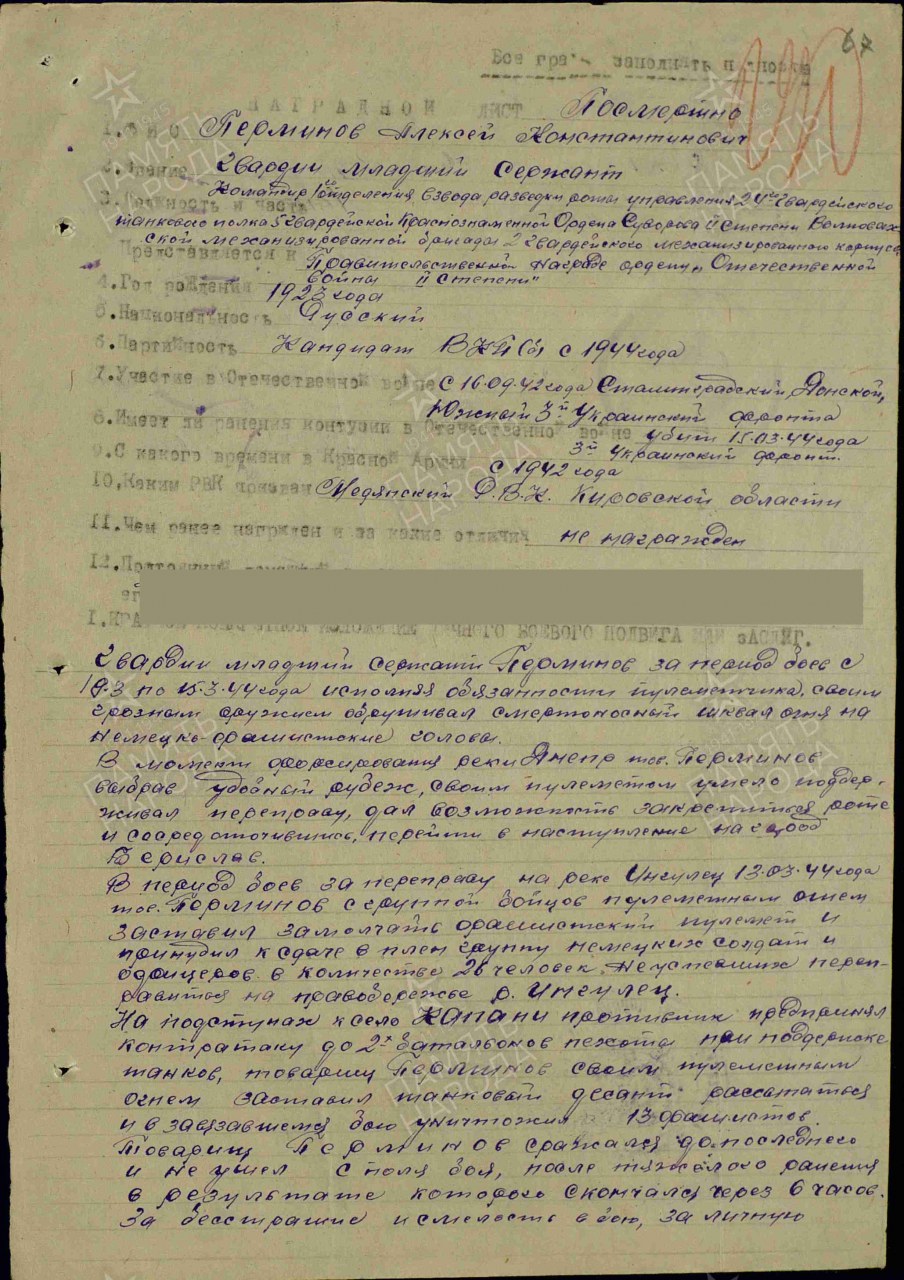 67
Все гра заполнять
НАГРАДНОЙ ЛИСТ Посмертно
1. Ф И О Перминов Алексей Константинович
2. Звание Гвардии младший сержант
3. Должность и часть Командир отделения взвода разведки роты управления 24го Гвардейского
танкового полка 5 Гвардейской Краснознаменной Ордена Суворова II степени Волновах-
ской механизированной бригады 2 Гвардейского механизированного корпуса
Представляется к Правительственной награде орденом Отечественной
Войны "II степени"
4. Год рождения 1923 года
5. Национальность Русский
6. Партийность Кандидат ВКП(б) с 1944 года
7. Участие в Отечественной войне с 16.09.42 года Сталинградский, Донской,
Южный 3й Украинский фронта
8. Имеет ли ранения контузии в Отечественной войне убит 15.03.44 года
3й Украинский фронт.
9. С какого времени в Красной Армии с 1942 года
10. Каким РВК призван Медянский Р.В.К. Кировской области
11. Чем ранее награжден и за какие отличия не награжден
12.
I. личного боевого подвига или заслуг.
Гвардии младший сержант Перминов за период боев с
по 15.3.44 года исполняя обязанности пулеметчика, своим
грозным оружием обрушивал смертоносный шквал огня на
немецко-фашистские головы.
В момент форсирования реки Днепр тов. Перминов
выбрав удобный рубеж, своим пулеметом умело поддер-
живал переправу, дал возможность закрепиться роте
и сосредоточившись, перейти в наступление на город
Берислав.
В период боев за переправу на реке Ингулец 13.03.44 года
тов. Перминов с группой бойцов пулеметным огнем
заставил замолчать фашистский пулемет и
принудил к сдаче в плен группу немецких солдат и
офицеров в количестве 26 человек, не успевших переп-
равиться на правобережье р. Ингулец.
На подступах к село Капани противник предпринял
контратаку до 2х батальонов пехоты при поддержке
танков, товарищ Перминов своим пулеметным
огнем заставил танковый десант рассыпаться
и в завязавшемся бою уничтожил 13 фашистов.
Товарищ Перминов сражался до последнего
и не ушел с поля боя, после тяжелого ранения
в результате которого скончался через 6 часов.
За бесстрашие и смелость в бою, за личную